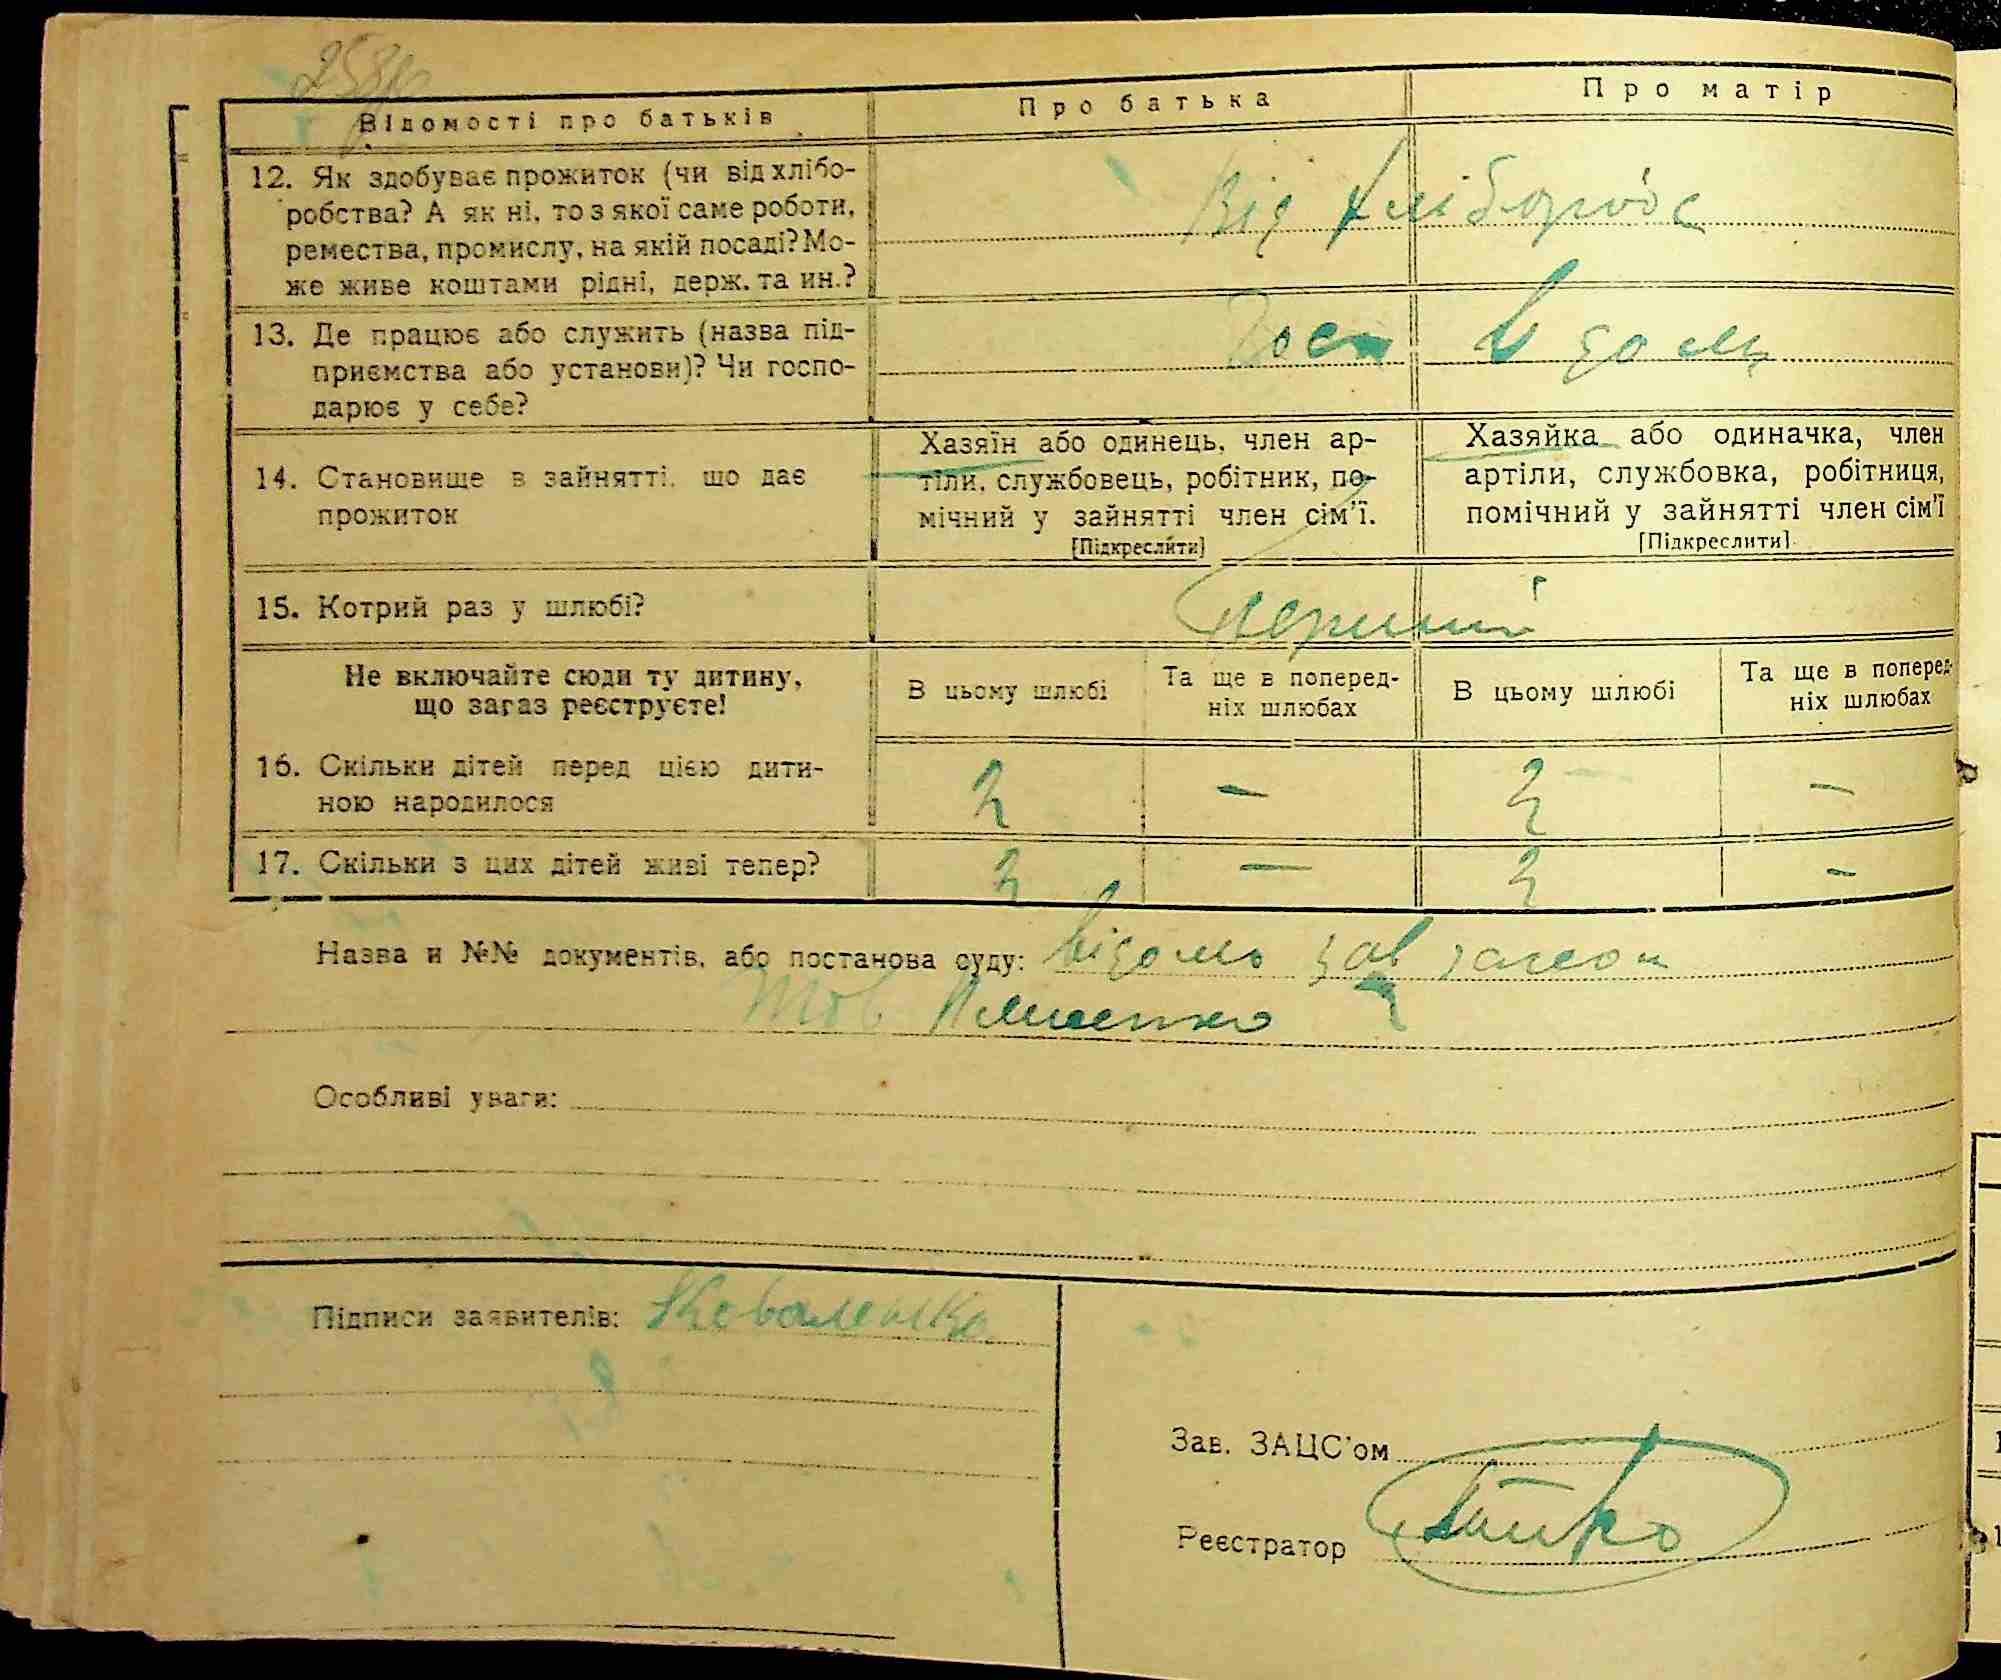 Відомості про батьків
Про батька
Про матір
12. Як здобуває прожиток (чи від хлібо-
робства? А як ні, то з якої саме роботи,
ремества, промислу, на якій посаді? Мо-
же живе коштами рідні, держ. та ин.?
Від
13. Де працює або служить (назва під-
приємства або установи)? Чи госпо-
дарює у себе?
14. Становище в зайнятті, що дає
прожиток
Хазяїн або одинець, член ар-
тіли, службовець, робітник, по-
мічний у зайнятті член сім'ї.
[Підкреслити]
Хазяйка або одиначка, член
артіли, службовка, робітниця,
помічний у зайнятті член сім'ї
[Підкреслити]
15. Котрий раз у шлюбі?
Перший
Не включайте сюди ту дитину,
що загаз реєструєте!
В цьому шлюбі
Та ще в поперед-
ніх шлюбах
В цьому шлюбі
Та ще в поперед-
ніх шлюбах
16. Скільки дітей перед цією дити-
ною народилося
2 — 2 —
17. Скільки з цих дітей живі тепер?
2 — 2 —
Назва и №№ документів, або постанова суду: відомо зав
тов
Особливі уваги:
Підписи заявителів: Коваленко
Зав. ЗАЦС'ом
Реєстратор